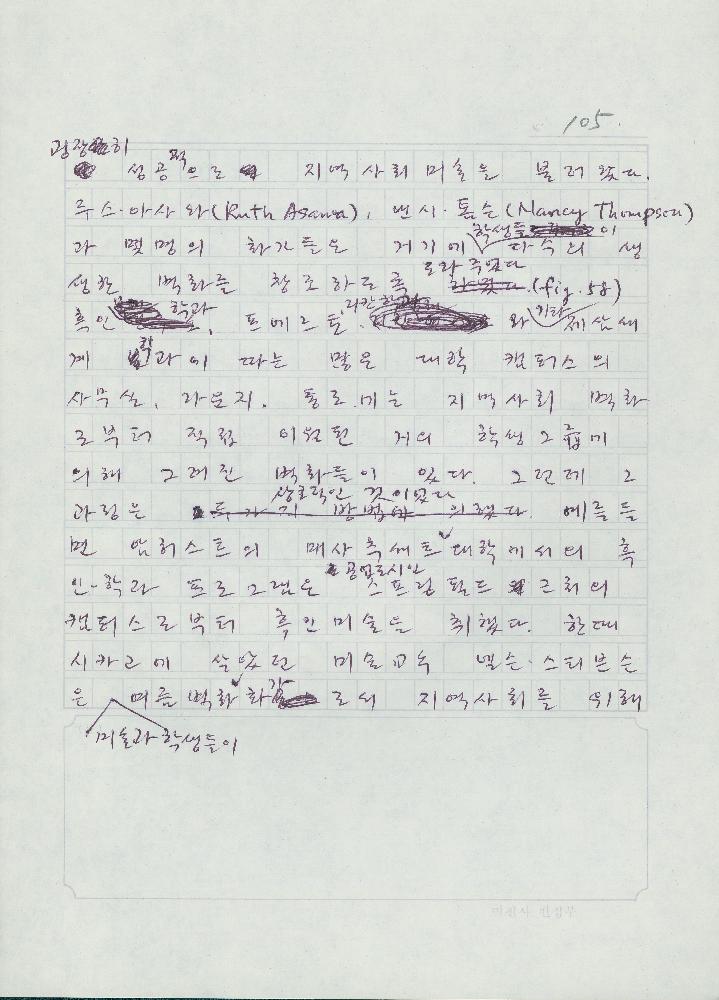 105.
굉장히
성공적으로 지역사회미술을 불러왔다.
루스·아사와(Ruth Asawa), 낸시·톰슨(Nancy Thompson)
과 몇명의 화가들은 거기에 학생들이 다수의 생
생한 벽화를 창조하도록 도와주었다.(fig.58)
흑인 학과, 푸에르토·리칸학과와 기타 제삼세
계 학과에 따르는 많은 대학 캠퍼스의
사무실, 라운지, 통로에는 지역사회 벽화
로부터 직접 이월된 거의 학생그룹에
의해 그려진 벽화들이 있다. 그런데 그
과정은 상호적인 것이었다 예를들
면 암허스트의 매사추세츠대학에서의 흑
인-학과 프로그램은 공업도시인 스프링필드 근처의
캠퍼스로부터 흑인미술을 취했다. 한때
시카고에 살았던 미술교수 넬슨·스티븐슨
은 여름벽화화가로서 지역사회를 위해
미술과 학생들이
미진사 편집부